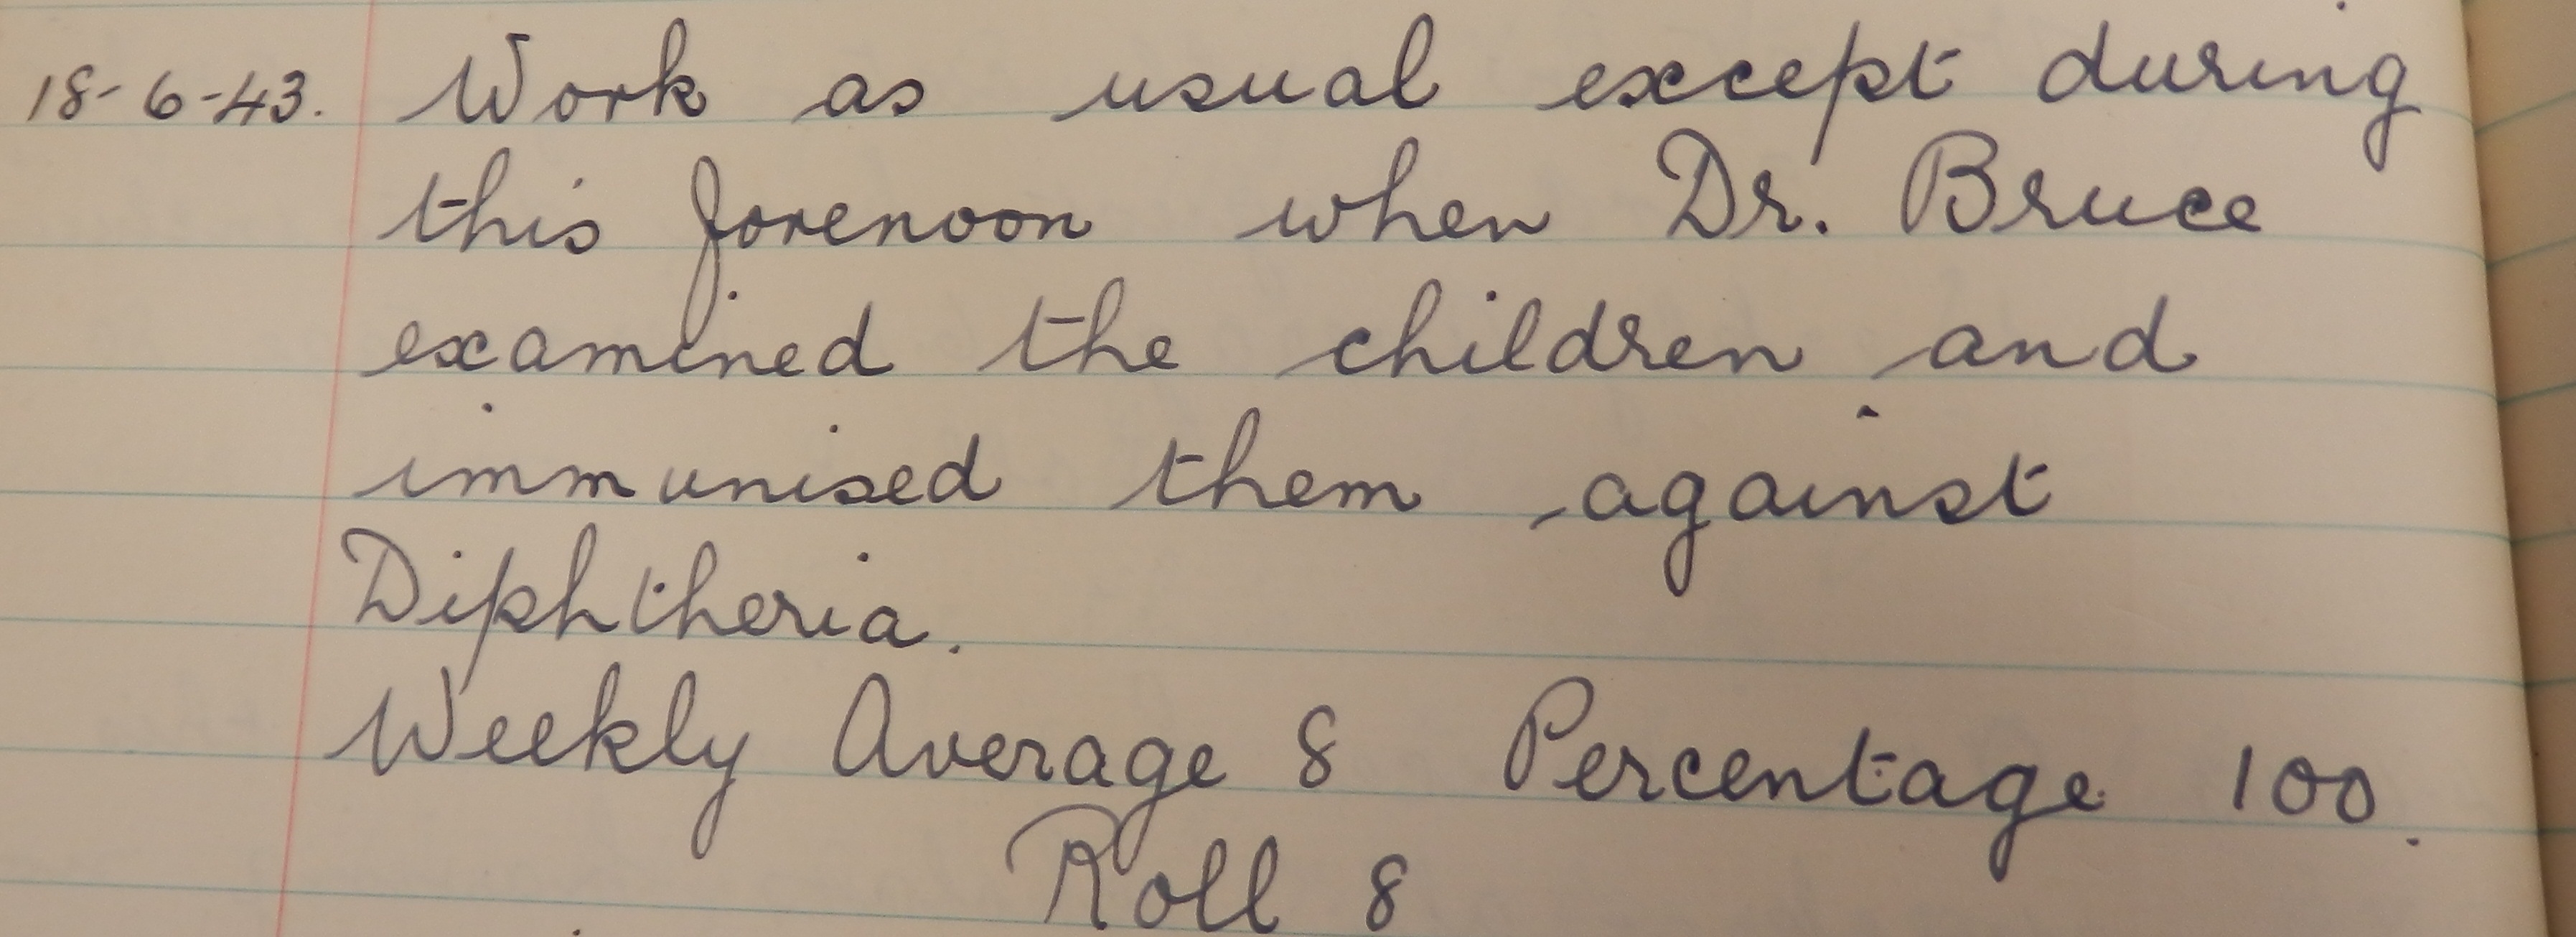 18-6-43. Work as usual except during
this forenoon when Dr. Bruce
examined the children and
immunised them against
Diphtheria.
Weekly Average 8 Percentage 100.
Roll 8